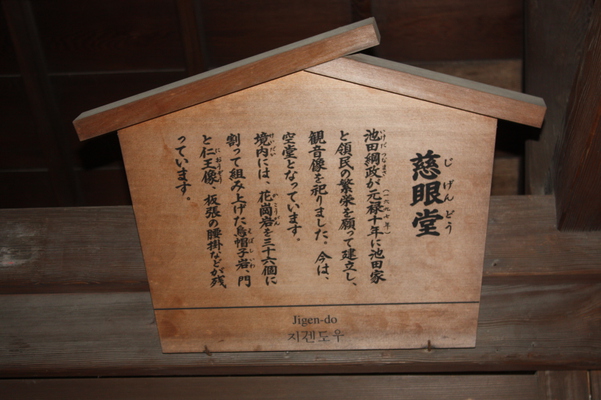 慈眼堂
じげんどう
池田綱政が元禄十年(一六九七年)に池田家
と領民の繁栄を願って建立し、
観音像を祀りました。今は、
空堂となっています。
境内には、花崗岩を三十六個に
割って組み上げた烏帽子岩、門
と仁王像、板張の腰掛などが残
っています。
Jigen-do
지겐도우